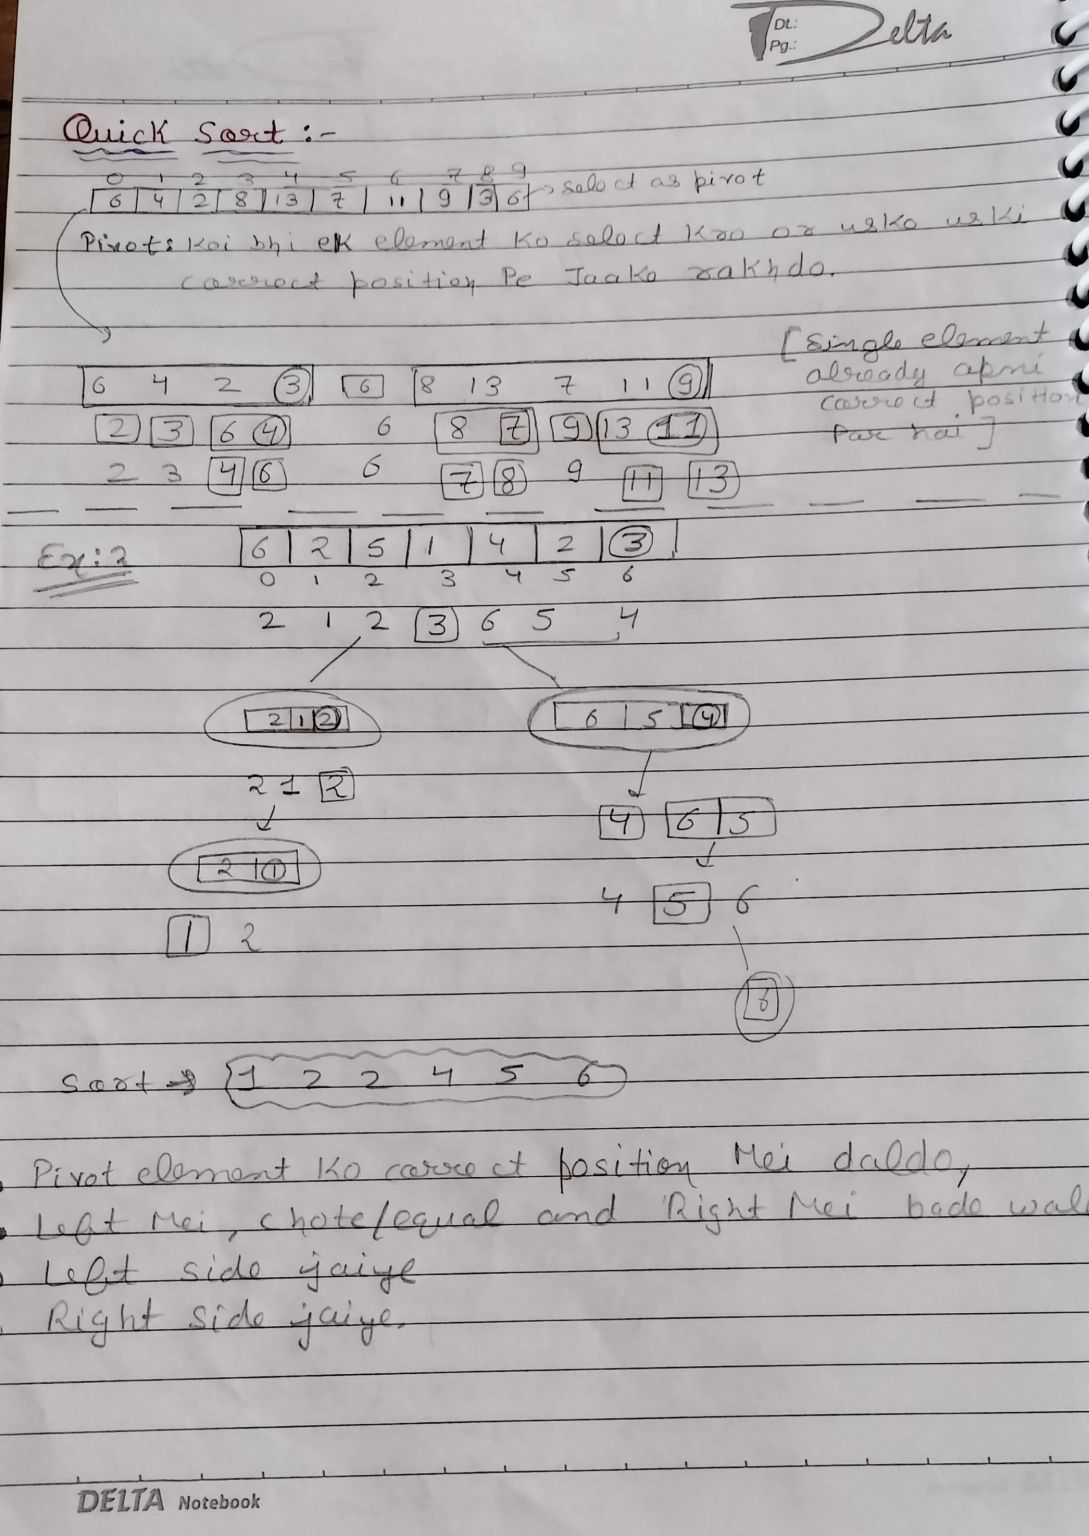 Dt.:
Pg.:
Delta
Quick Sort :-
0 1 2 3 4 5 6 7 8 9
6 4 2 8 13 7 11 9 3 6 → select as pivot
Pivot: Koi bhi ek element Ko select Kro or usko uski
correct position Pe Jaake rakhdo.
[Single element
already apni
correct position
Par hai]
6 4 2 3 6 8 13 7 11 9
2 3 6 4 6 8 7 9 13 11
2 3 4 6 6 7 8 9 11 13
Ex: 2
6 2 5 1 4 2 3
0 1 2 3 4 5 6
2 1 2 3 6 5 4
2 1 2 6 5 4
2 1 2
4 6 5
2 1
4 5 6
1 2
6
Sort → 1 2 2 4 5 6
Pivot element Ko correct position Mei daldo,
Left Mei, chote/equal and Right Mei bade wal
Left side jaiye
Right side jaiye.
DELTA Notebook